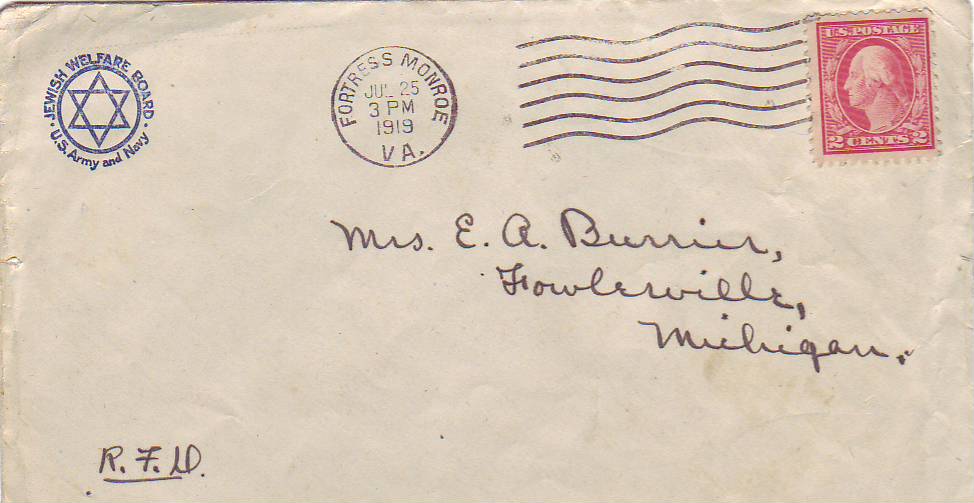 · JEWISH WELFARE BOARD ·
U.S. Army and Navy
FORTRESS MONROE
JUL 25
3 PM
1919
VA.
U.S. POSTAGE
2 CENTS 2
Mrs. E. A. Burrier,
Fowlerville,
Michigan.
R.F.D.